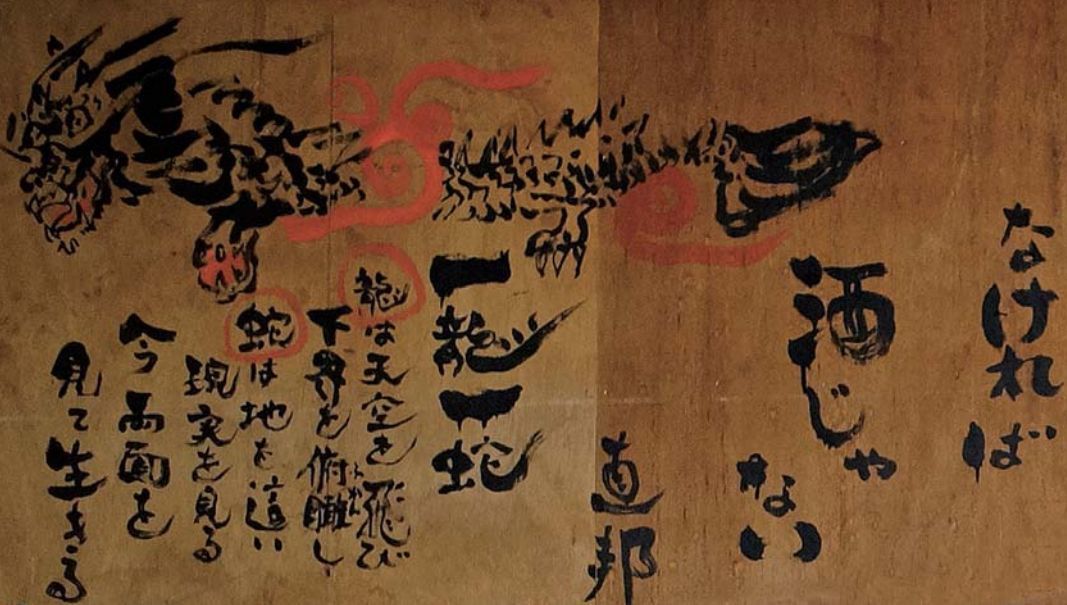 なければ
酒じゃ
ない
直邦
一龍一蛇
龍は天空を飛び
下界を俯瞰し
蛇は地を這い
現実を見る
今両面を
見て生きる